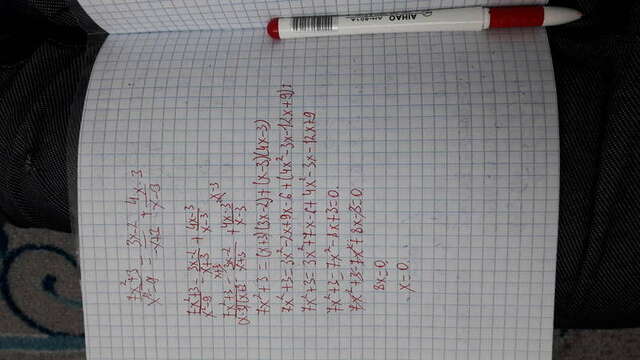 (7x²+3)/(x²-9) = (3x-2)/(x+3) + (4x-3)/(x-3)
(7x²+3)/(x²-9) = (3x-2)/(x+3) + (4x-3)/(x-3)
(7x²+3)/((x-3)(x+3)) = (3x-2)/(x+3) \x+3 + (4x-3)/(x-3) \x-3
7x²+3 = (x+3)(3x-2)+(x-3)(4x-3)
7x²+3 = 3x²-2x+9x-6+(4x²-3x-12x+9)
7x²+3 = 3x²+7x-6+4x²-3x-12x+9
7x²+3-7x²-8x+3=0.
7x²+3-7x²+8x-3=0
8x=0
x=0.
AIHAO